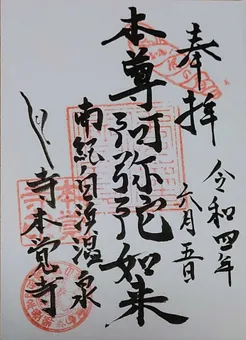 奉拝
令和四年
六月五日
本尊阿弥陀如来
南紀白浜温泉
寺本覚寺